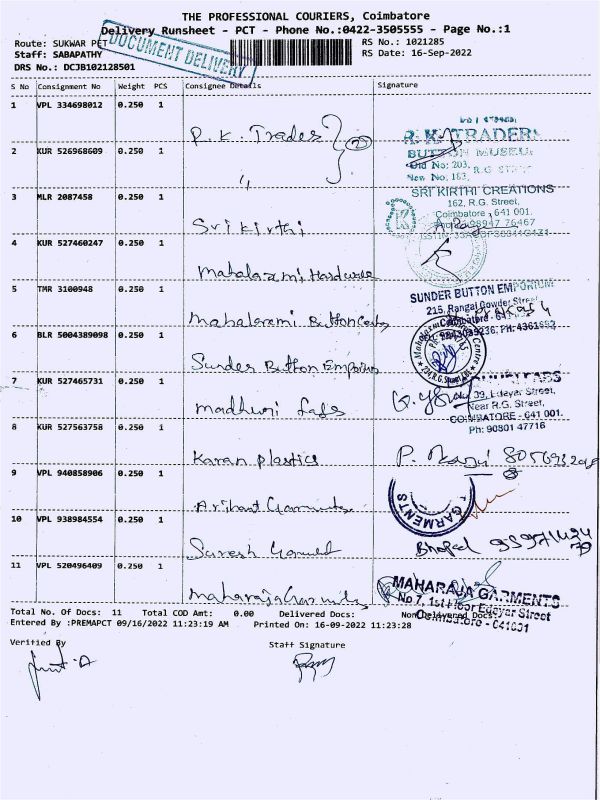 THE PROFESSIONAL COURIERS, Coimbatore
Delivery Runsheet - PCT - Phone No.:0422-3505555 - Page No.:1
Route: SUKWAR PET
DOCUMENT DELIVERY
RS No.: 1021285
Staff: SABAPATHY
RS Date: 16-Sep-2022
DRS No.: DCJB102128501
S No Consignment No Weight PCS Consignee Details Signature
1 VPL 334698012 0.250 1
R.K. Traders 2
R.K. TRADERS
BUTTON MUSEUM
Old No: 203,
New No: 163, R.G.
2 KUR 526968609 0.250 1
〃
3 MLR 2087458 0.250 1
Sri Kirthi
SRI KIRTHI CREATIONS
162, R.G. Street,
Coimbatore - 641 001.
4 KUR 527460247 0.250 1
Mahalaxmi Hardware
5 TMR 3100948 0.250 1
Mahalaxmi Button Centre
SUNDER BUTTON EMPORIUM
215, Rangai Gowder Street
6 BLR 5004389098 0.250 1
Sunder Button Emporium
7 KUR 527465731 0.250 1
Madhuri Fabs
39, Edayar Street,
Near R.G. Street,
COIMBATORE - 641 001.
Ph: 90801 47716
8 KUR 527563758 0.250 1
Karan Plastics
9 VPL 940858906 0.250 1
Arihant Garments
GARMENTS
10 VPL 938984554 0.250 1
Suresh Garment
11 VPL 520496409 0.250 1
Maharaja Garments
MAHARAJA GARMENTS
No 7, 1st Floor Edayar Street
Coimbatore - 641001
Total No. Of Docs: 11 Total COD Amt: 0.00 Delivered Docs: Non Delivered Docs:
Entered By :PREMAPCT 09/16/2022 11:23:19 AM Printed On: 16-09-2022 11:23:28
Verified By Staff Signature